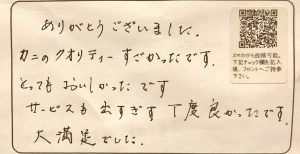 ありがとうございました。
カニのクオリティーすごかったです。
とっても おいしかったです
サービスも 出すぎず 丁度良かったです。
大満足でした。
スマホから投稿可能。
下記チェック欄を記入
後、フロントへご持参
下さい。